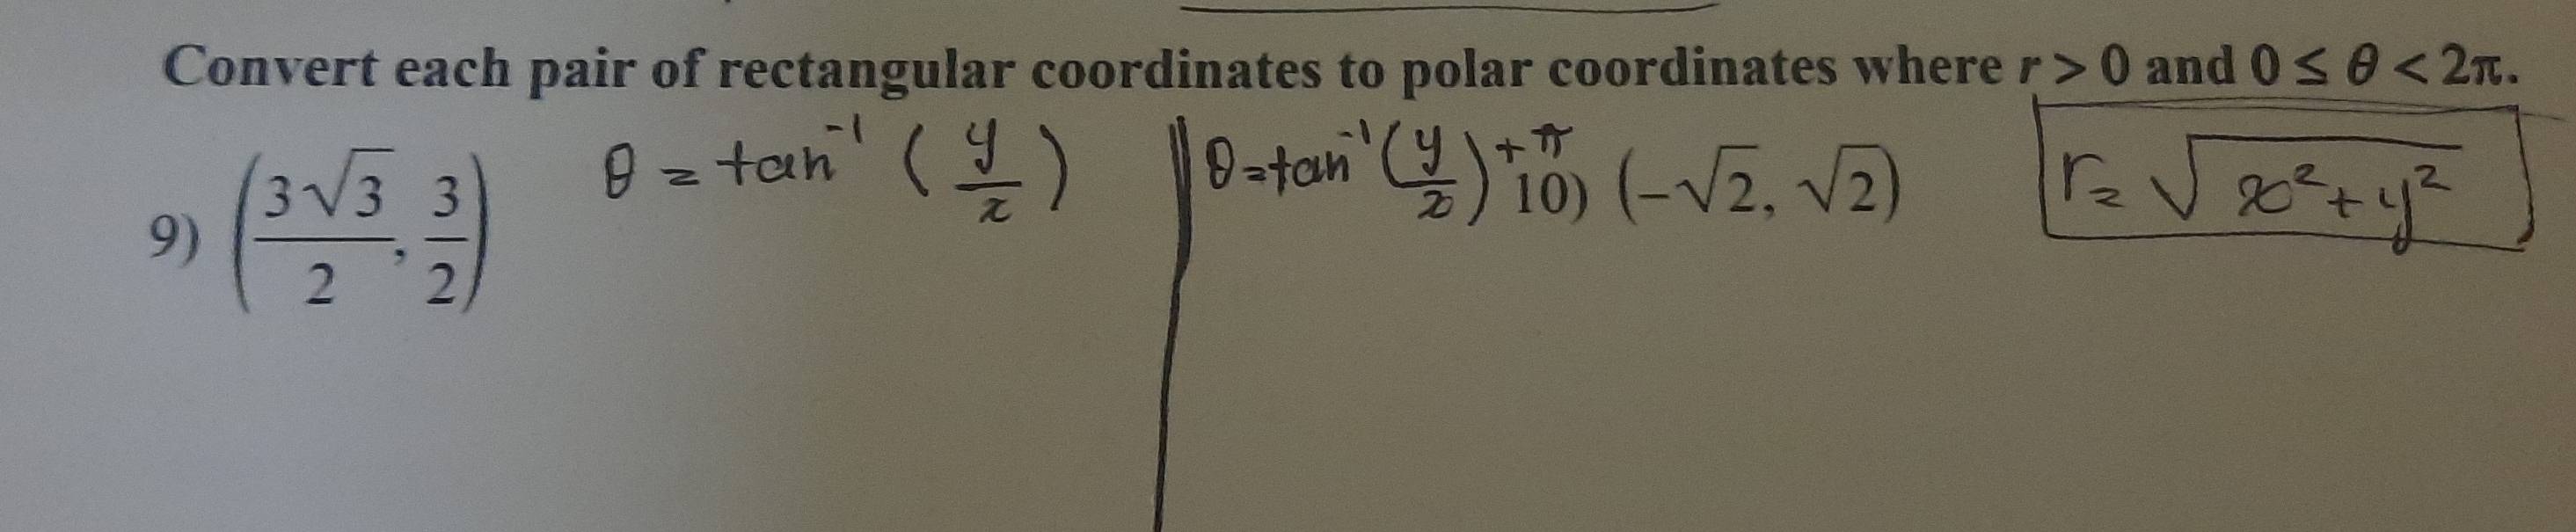 Convert each pair of rectangular coordinates to polar coordinates where r > 0 and 0 ≤ θ < 2π.
9) (3√3/2, 3/2)
θ = tan⁻¹ (y/x)
θ = tan⁻¹ (y/x) + π
10) (-√2, √2)
r = √x² + y²